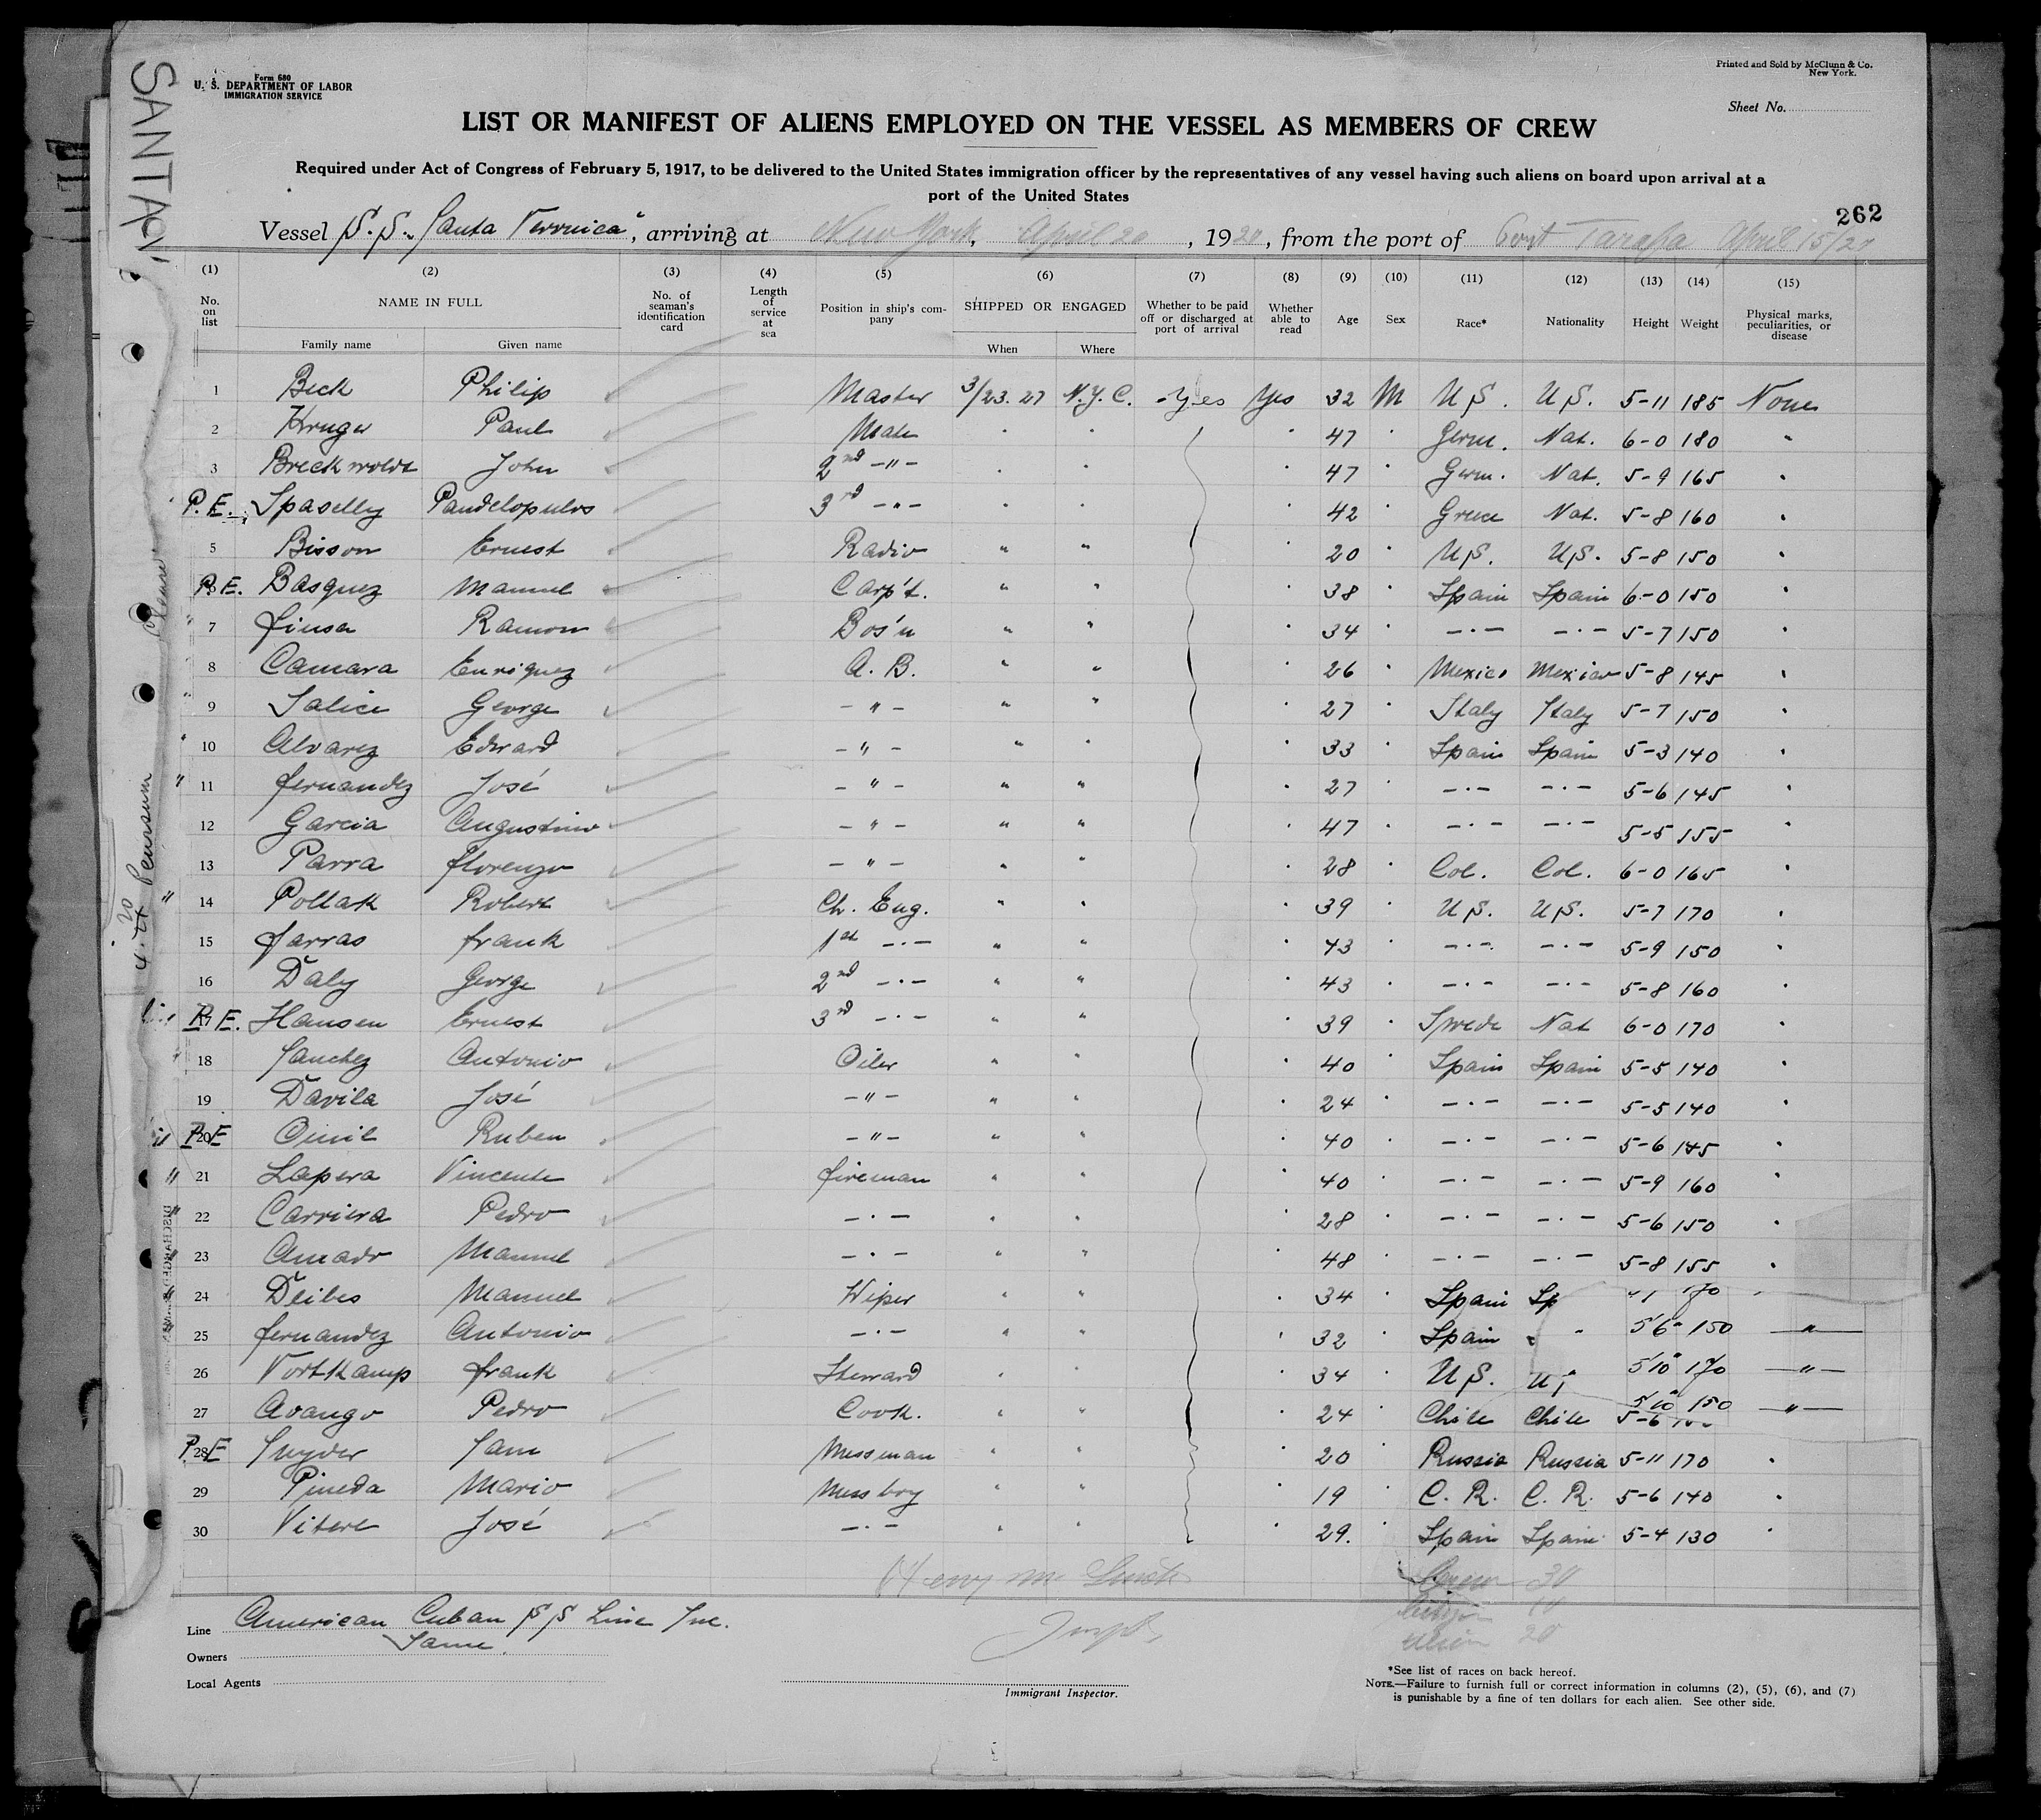 SANTA V
Form 680
U. S. DEPARTMENT OF LABOR
IMMIGRATION SERVICE
Printed and Sold by McClunn & Co.
New York.
Sheet No.
LIST OR MANIFEST OF ALIENS EMPLOYED ON THE VESSEL AS MEMBERS OF CREW
Required under Act of Congress of February 5, 1917, to be delivered to the United States immigration officer by the representatives of any vessel having such aliens on board upon arrival at a
port of the United States
262
Vessel S.S. "Santa Veronica", arriving at New York, April 20, 1920, from the port of Port Tarafa April 15/20
(1) (2) (3) (4) (5) (6) (7) (8) (9) (10) (11) (12) (13) (14) (15)
No. on list NAME IN FULL Family name Given name No. of seaman's identification card Length of service at sea Position in ship's company SHIPPED OR ENGAGED When Where Whether to be paid off or discharged at port of arrival Whether able to read Age Sex Race* Nationality Height Weight Physical marks, peculiarities, or disease
1 Beck Philip Master 3/23.27 N.Y.C. Yes Yes 32 M U.S. U.S. 5-11 185 None
2 Kruger Paul Mate " " 47 " Germ. Nat. 6-0 180 "
3 Breckwoldt John 2nd -"- " " 47 " Germ. Nat. 5-9 165 "
P.E. Spaselly Pandelopulos 3rd -"- " " 42 " Greece Nat. 5-8 160 "
5 Bisson Ernest Radio " " 20 " U.S. U.S. 5-8 150 "
P.E. Basquez Manuel Carp't. " " 38 " Spain Spain 6-0 150 "
7 Ramon Bos'n " " 34 " -"- -"- 5-7 150 "
8 Camara Enriquez A.B. " " 26 " Mexico Mexico 5-8 145 "
9 Salice George -"- " " 27 " Italy Italy 5-7 150 "
10 Alvarez Edward -"- " " 33 " Spain Spain 5-3 140 "
11 Fernandez José -"- " " 27 " -"- -"- 5-6 145 "
12 Garcia Augustino -"- " " 47 " -"- -"- 5-5 155 "
13 Parra Florenzo -"- " " 28 " Col. Col. 6-0 165 "
14 Pollak Robert Ch. Eng. " " 39 " U.S. U.S. 5-7 170 "
15 Farras Frank 1st -"- " " 43 " -"- -"- 5-9 150 "
16 Daly George 2nd -"- " " 43 " -"- -"- 5-8 160 "
17 P.E. Hansen Ernest 3rd -"- " " 39 " Swede Nat 6-0 170 "
18 Sanchez Antonio Oiler " " 40 " Spain Spain 5-5 140 "
19 Davila José -"- " " 24 " -"- -"- 5-5 140 "
20 P.E. Ruben -"- " " 40 " -"- -"- 5-6 145 "
21 Lapera Vincente Fireman " " 40 " -"- -"- 5-9 160 "
22 Carriera Pedro -"- " " 28 " -"- -"- 5-6 150 "
23 Amado Manuel -"- " " 48 " -"- -"- 5-8 155 "
24 Deibes Manuel Wiper " " 34 " Spain Sp 170
25 Fernandez Antonio -"- " " 32 " Spain " 5'6" 150 -"-
26 Vortkamp Frank Steward " " 34 " U.S. U 5'10" 170 -"-
27 Arango Pedro Cook. " " 24 " Chile Chile 5'10" 150 -"- 5-6
28 P.E. Snyder Sam Messman " " 20 " Russia Russia 5-11 170 "
29 Pineda Mario Messboy " " 19 " C.R. C.R. 5-6 140 "
30 Vitere José -"- " " 29. " Spain Spain 5-4 130 "
Crew 30
10
Alien 20
Line American Cuban S S Line Inc.
Owners Same
Local Agents
Immigrant Inspector.
*See list of races on back hereof.
NOTE.—Failure to furnish full or correct information in columns (2), (5), (6), and (7)
is punishable by a fine of ten dollars for each alien. See other side.